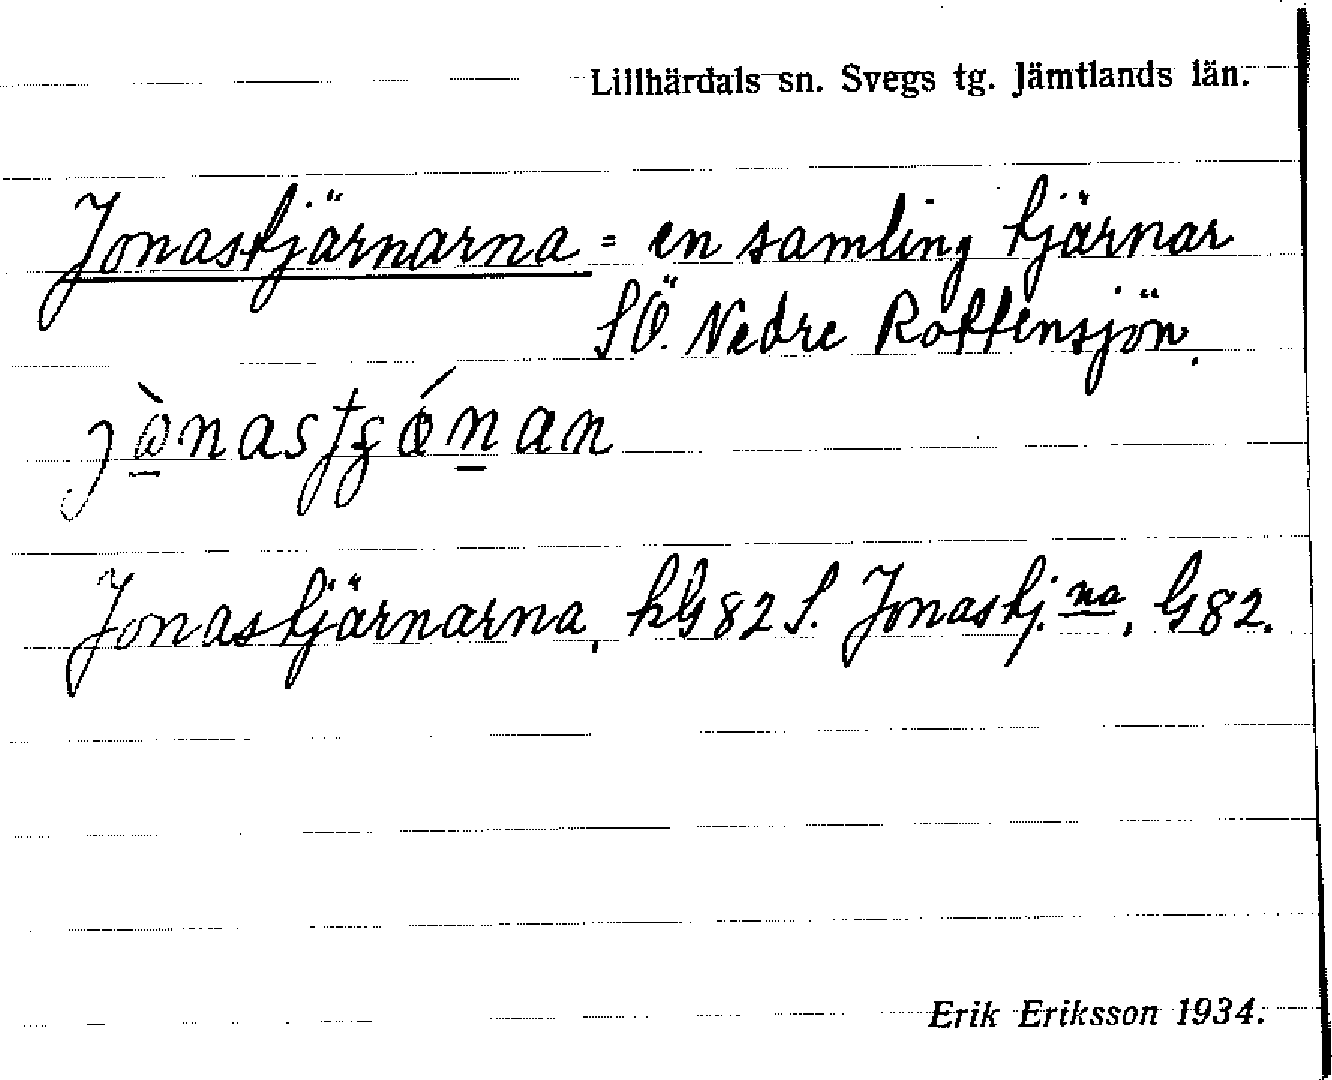 Lillhärdals sn. Svegs tg. Jämtlands län.
Jonastjärnarna = en samling tjärnar
SÖ. Nedre Rottensjön.
Jonastjärnarna, kG82 S. Jonastj.na, G82.
Erik Eriksson 1934.